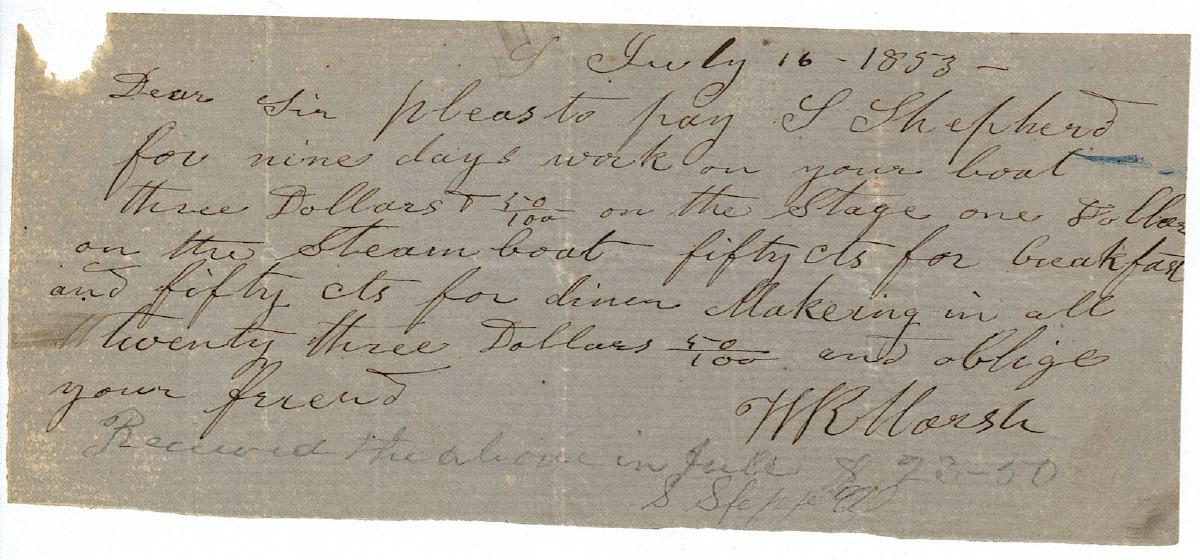 July 16 - 1853 -
Dear Sir pleas to pay S Shepherd
for nine days work on your boat
three Dollars & 50/100 on the Stage one Dollar
on the Steam boat fifty cts for breakfast
and fifty cts for dinen Makeing in all
twenty three Dollars 50/100 and oblige
your friend
W R Marsh
Received the above in full $ 23-50
S